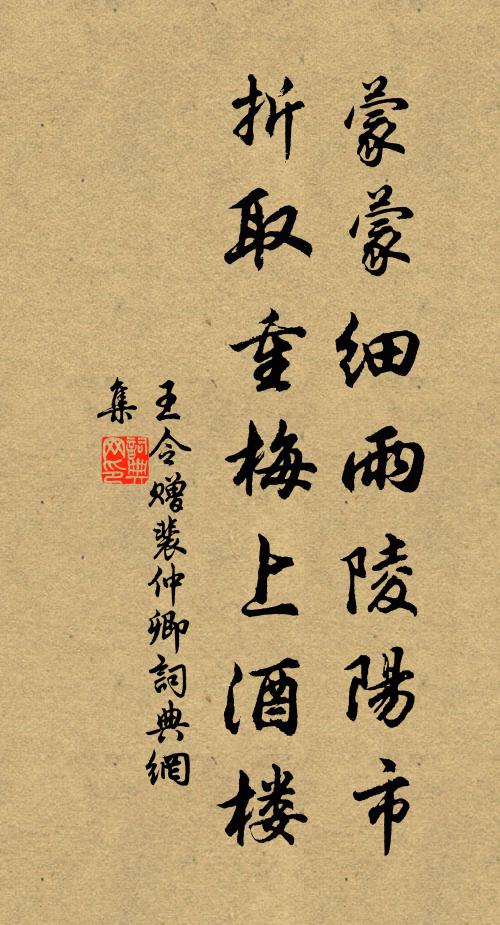 蒙蒙細雨陵陽市
折取重梅上酒楼
王令赠裴仲卿詞典網
集
詞典
网印